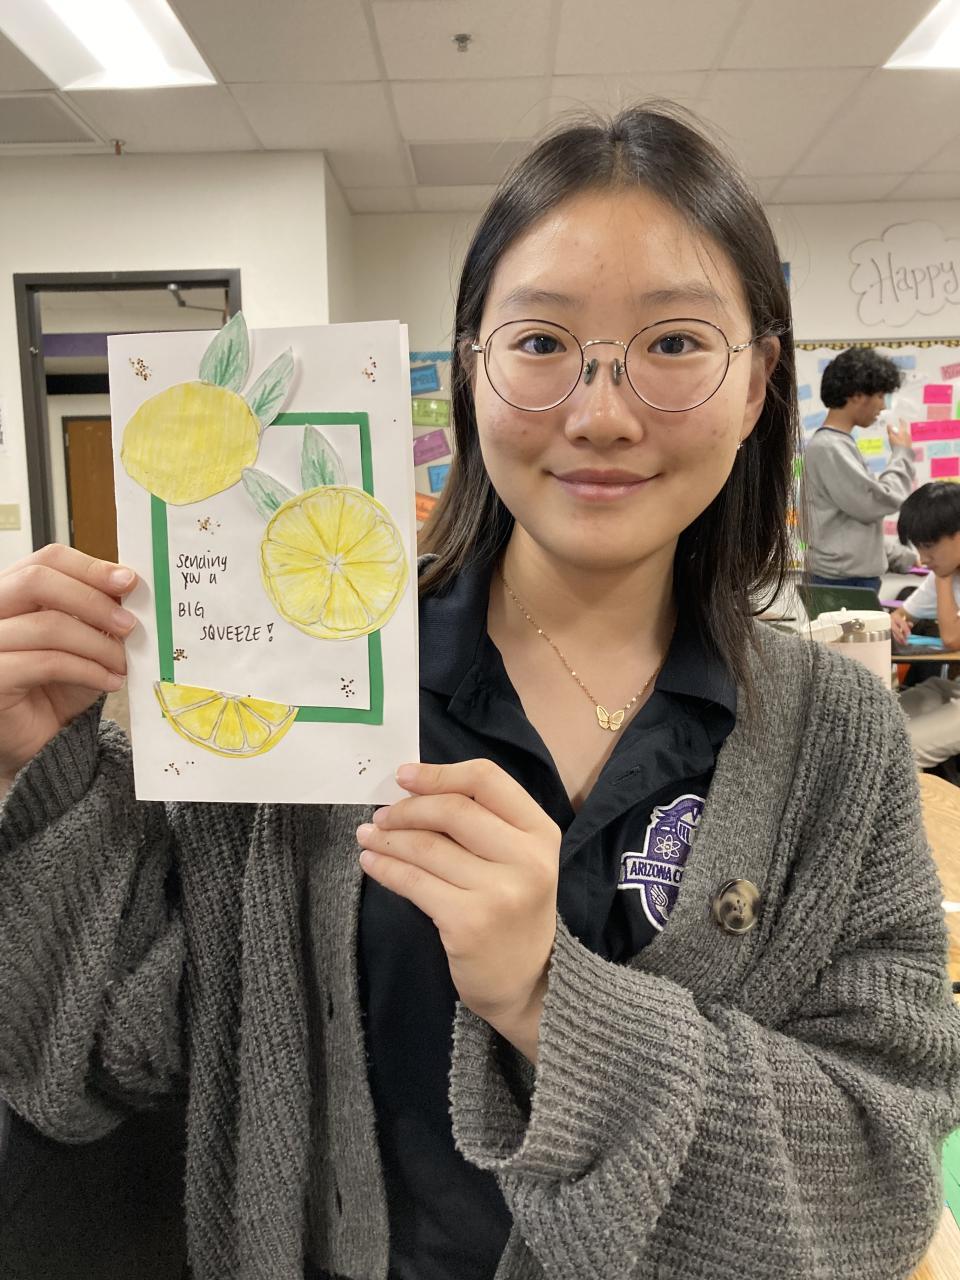 sending
you a
BIG
SQUEEZE!
Happy
ARIZONA C